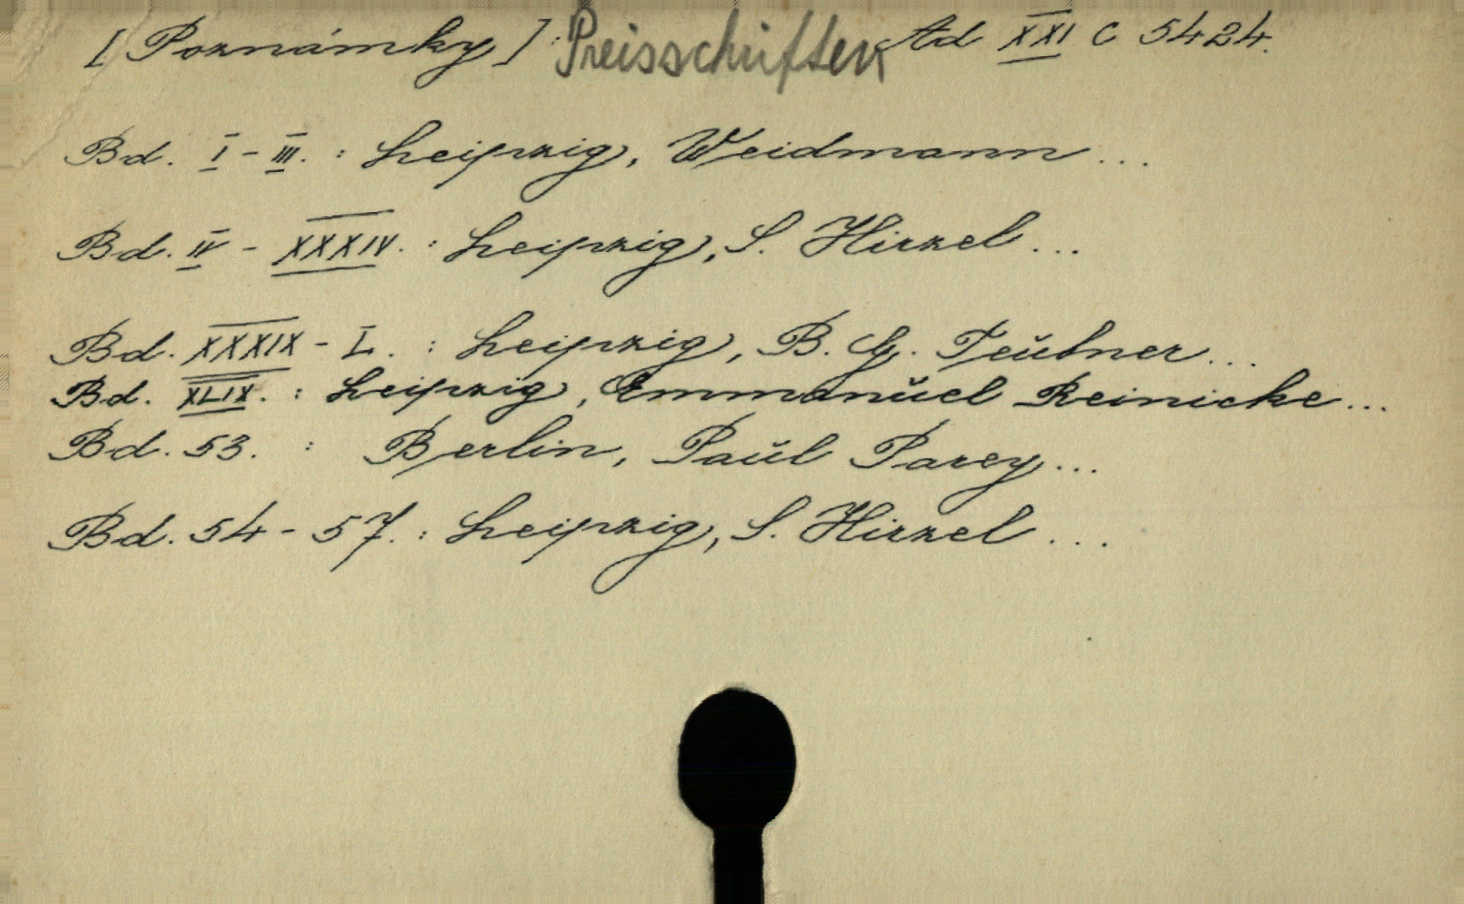 [Poznámky]: Preisschriften Ad XXI C 5424.
Bd. I-III. : Leipzig, Weidmann ...
Bd. IV - XXXIV. : Leipzig, S. Hirzel ...
Bd. XXXIX - L. : Leipzig, B. G. Teubner ...
Bd. XLIX. : Leipzig, Emmanuel Reinicke ...
Bd. 53. : Berlin, Paul Parey ...
Bd. 54 - 57. : Leipzig, S. Hirzel ...